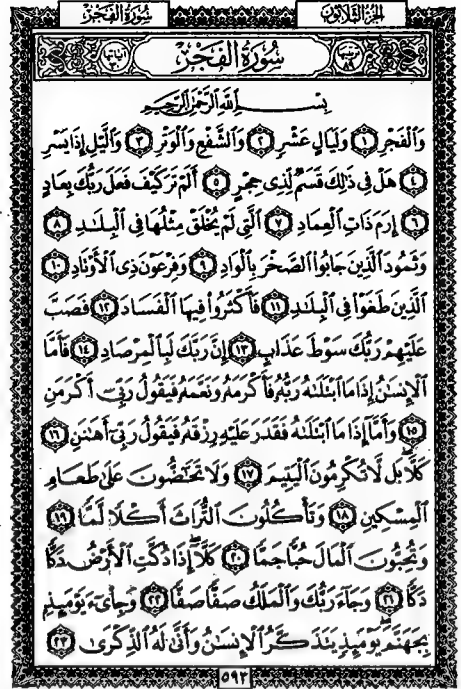 سُورَةُ الفَجْرِ الجُزْءُ الثَّلَاثُونَ
سُورَةُ الفَجْرِ
بِسْمِ ٱللَّهِ ٱلرَّحْمَٰنِ ٱلرَّحِيمِ
وَٱلْفَجْرِ ﴿١﴾ وَلَيَالٍ عَشْرٍ ﴿٢﴾ وَٱلشَّفْعِ وَٱلْوَتْرِ ﴿٣﴾ وَٱلَّيْلِ إِذَا يَسْرِ
﴿٤﴾ هَلْ فِي ذَٰلِكَ قَسَمٌ لِّذِي حِجْرٍ ﴿٥﴾ أَلَمْ تَرَ كَيْفَ فَعَلَ رَبُّكَ بِعَادٍ
﴿٦﴾ إِرَمَ ذَاتِ ٱلْعِمَادِ ﴿٧﴾ ٱلَّتِي لَمْ يُخْلَقْ مِثْلُهَا فِي ٱلْبِلَٰدِ ﴿٨﴾
وَثَمُودَ ٱلَّذِينَ جَابُوا۟ ٱلصَّخْرَ بِٱلْوَادِ ﴿٩﴾ وَفِرْعَوْنَ ذِي ٱلْأَوْتَادِ ﴿١٠﴾
ٱلَّذِينَ طَغَوْا۟ فِي ٱلْبِلَٰدِ ﴿١١﴾ فَأَكْثَرُوا۟ فِيهَا ٱلْفَسَادَ ﴿١٢﴾ فَصَبَّ
عَلَيْهِمْ رَبُّكَ سَوْطَ عَذَابٍ ﴿١٣﴾ إِنَّ رَبَّكَ لَبِٱلْمِرْصَادِ ﴿١٤﴾ فَأَمَّا
ٱلْإِنسَٰنُ إِذَا مَا ٱبْتَلَىٰهُ رَبُّهُۥ فَأَكْرَمَهُۥ وَنَعَّمَهُۥ فَيَقُولُ رَبِّيٓ أَكْرَمَنِ
﴿١٥﴾ وَأَمَّآ إِذَا مَا ٱبْتَلَىٰهُ فَقَدَرَ عَلَيْهِ رِزْقَهُۥ فَيَقُولُ رَبِّيٓ أَهَٰنَنِ ﴿١٦﴾
كَلَّا ۖ بَل لَّا تُكْرِمُونَ ٱلْيَتِيمَ ﴿١٧﴾ وَلَا تَحَٰٓضُّونَ عَلَىٰ طَعَامِ
ٱلْمِسْكِينِ ﴿١٨﴾ وَتَأْكُلُونَ ٱلتُّرَاثَ أَكْلًا لَّمًّا ﴿١٩﴾
وَتُحِبُّونَ ٱلْمَالَ حُبًّا جَمًّا ﴿٢٠﴾ كَلَّآ إِذَا دُكَّتِ ٱلْأَرْضُ دَكًّا
دَكًّا ﴿٢١﴾ وَجَآءَ رَبُّكَ وَٱلْمَلَكُ صَفًّا صَفًّا ﴿٢٢﴾ وَجِا۟يٓءَ يَوْمَئِذٍۭ
بِجَهَنَّمَ ۚ يَوْمَئِذٍ يَتَذَكَّرُ ٱلْإِنسَٰنُ وَأَنَّىٰ لَهُ ٱلذِّكْرَىٰ ﴿٢٣﴾
٥٩٣